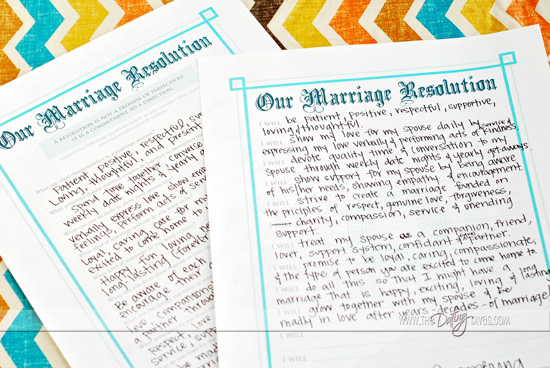 Our Marriage Resolution
A RESOLUTION IS NOT A PROMISE OF PERFECTION,
IT IS A COMMITMENT TO A DIRECTION.
Patient, positive, respectful,
loving, thoughtful, and present
spend time together
weekly date nights & yearly
verbally express love
feelings, perform acts of
loyal, caring
excited to come home to
Happy, fun, loving
long lasting (forever
Be aware of each
encourage their
love companions
a partner through
Respect, love
service
be mad
Our Marriage Resolution
I WILL be patient, positive, respectful, supportive,
loving & thoughtful.
I WILL show my love for my spouse daily by
expressing my love verbally & performing acts of service & kindness.
I WILL devote quality time & conversation to my
spouse through weekly date nights & yearly get-aways.
I WILL show support for my spouse by being aware
of his/her needs, showing empathy & encouragement.
I WILL strive to create a marriage founded on
the principles of respect, genuine love, forgiveness,
charity, compassion, service & unending
support.
I WILL treat my spouse as a companion, friend,
lover, support system, confidant & partner.
I WILL promise to be loyal, caring, compassionate,
& the type of person you are excited to come home to.
I WILL do all this so that I might have a long lasting
marriage that is happy, exciting, loving &
I WILL grow together with my spouse & be
madly in love after years - decades - of marriage!
I WILL
WWW.THE Dating DIVAS.COM
I WILL
I WILL